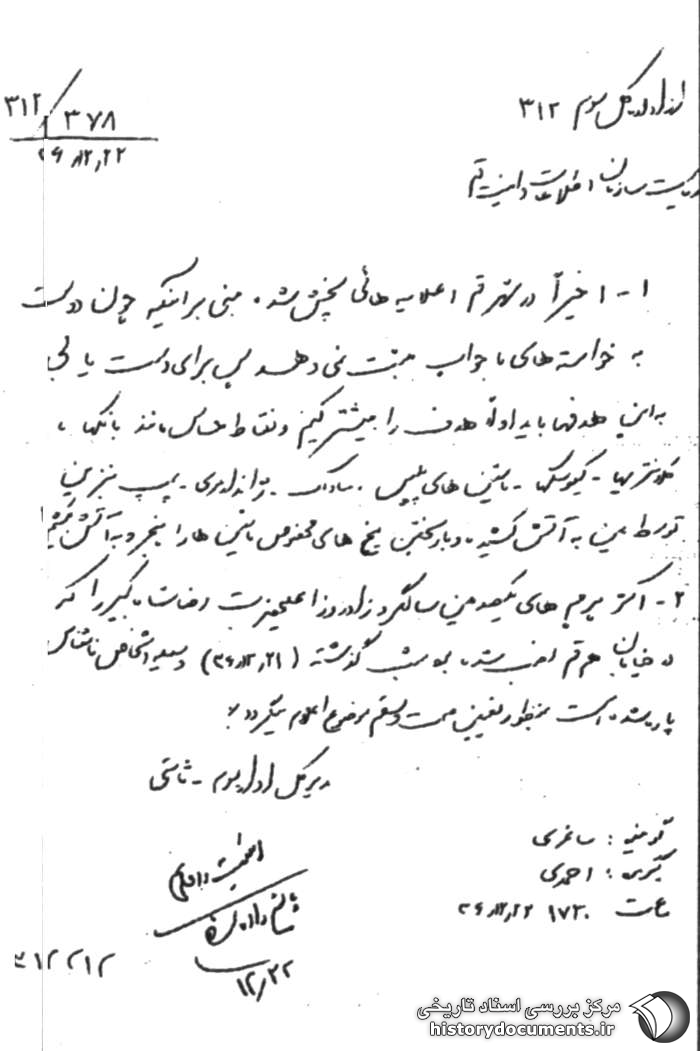 از اداره کل سوم ۳۱۲
۳۱۲/۳۷۸
۳۶,۱۲,۲۲
ریاست سازمان اطلاعات و امنیت قم
۱- اخیراً در شهر قم اعلامیه هائی پخش شده مبنی بر اینکه چون دولت
به خواسته های ما جواب مثبت نمی دهد پس برای دست یابی
به این هدفها باید اولاً هدف را بیشتر کنیم و نقاط حساس مانند بانکها ،
کلانتریها - کیوسکها - ماشین های پلیس - ساواک - ژاندارمری - پمپ بنزین
توسط بنزین به آتش کشیده و با ریختن میخ های مخصوص ماشین ها را پنجر و به آتش بکشیم
۲- اکثر پرچم های یکصدمین سالگرد زادروز اعلیحضرت رضا شاه کبیر را که
در خیابان های قم نصب شده بود شب گذشته (۳۶,۱۲,۲۱) وسیله اشخاص ناشناس
پاره شده است بمنظور تعیین صحت و سقم موضوع اعلام میگردد
مدیر کل اداره سوم - ثابتی
گوینده : ساغری
گیرنده : احمدی
ساعت ۱۷۳۰ ۳۶,۱۲,۲۲
امنیت داخلی
پاسخ داده شده
۱۲/۲۲
۳۱۲ ۲۱۲
مرکز بررسی اسناد تاریخی
historydocuments.ir